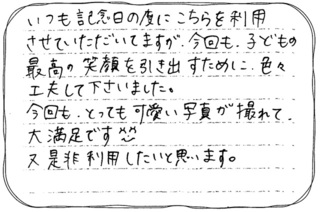 いつも記念日の度にこちらを利用
させていただいてますが、今回も、子どもの
最高の笑顔を引き出すために、色々
工夫して下さいました。
今回も、とっても可愛い写真が撮れて、
大満足です^^
又是非利用したいと思います。